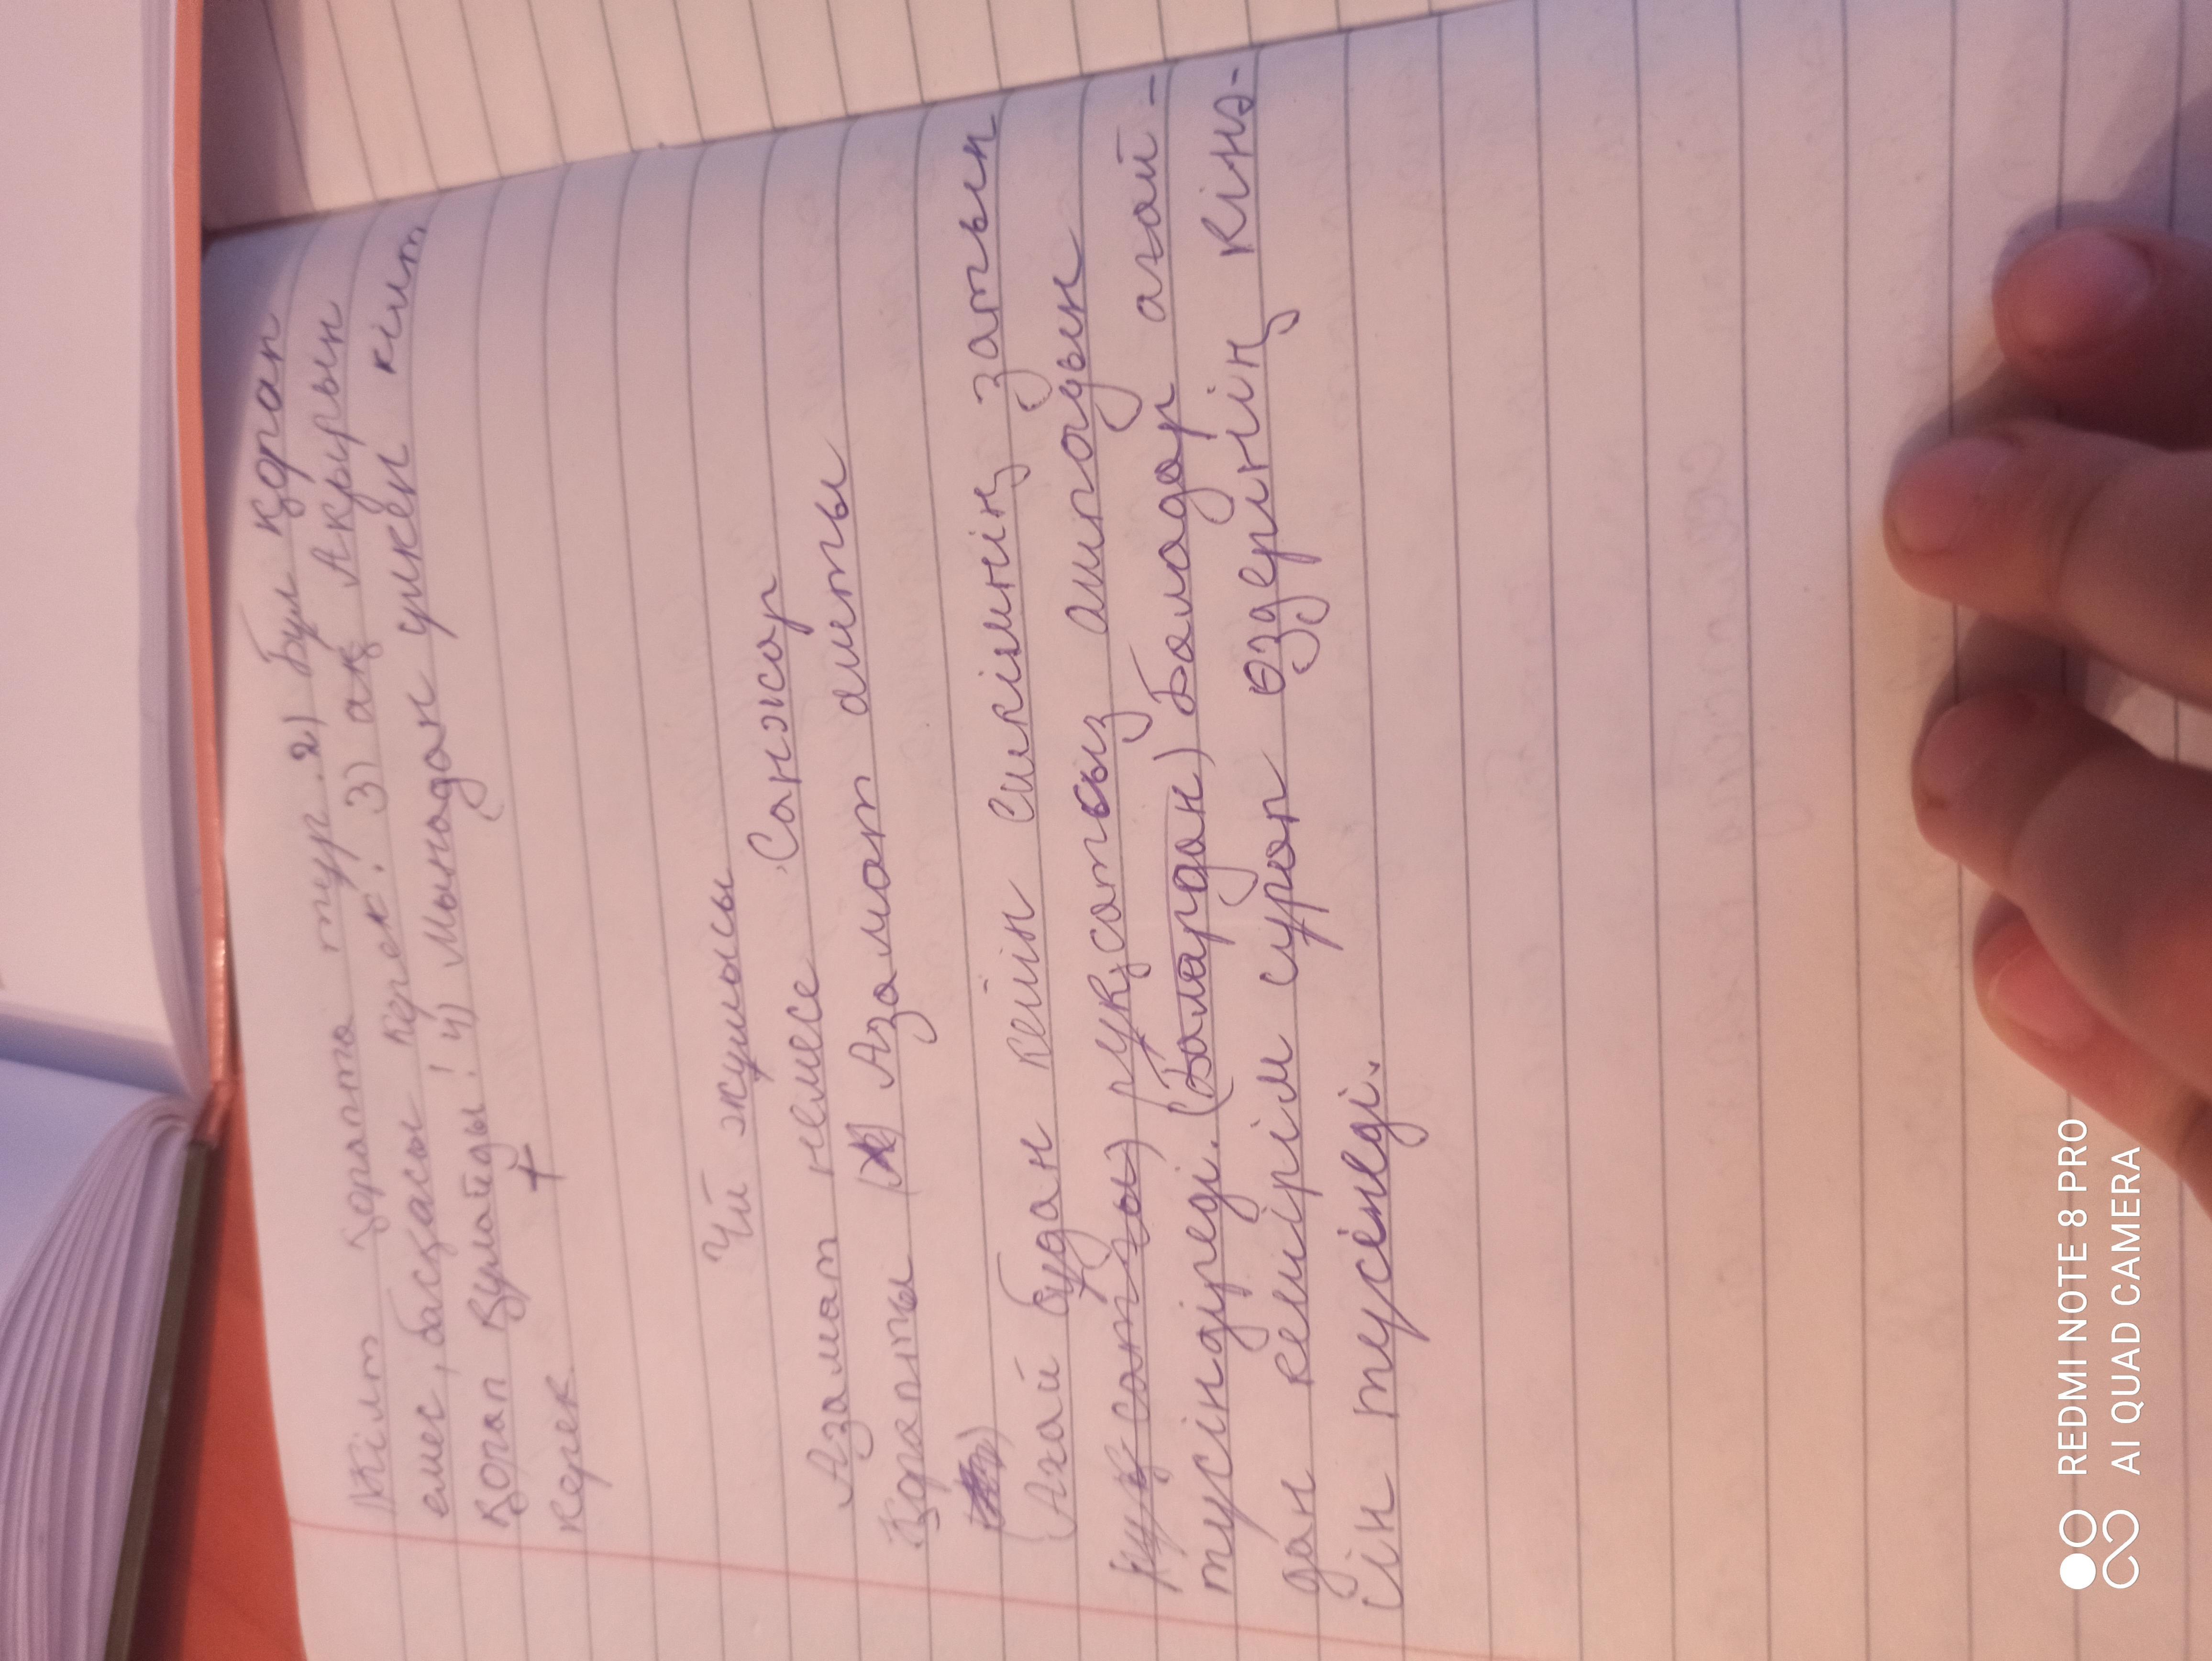 1) Кілт қорапта тур. 2) Бул қорап
емес, басқасы керек. 3) ақ Ақырын
қорап қулайды! 4) Мынадан улкен кілт
керек.
Үй жумысы
Азамат немесе Санжар
Қорапты Азамат ашты
Ағай будан кейін Сикімнің затын
руқсатсыз ашпадын
тусіндіреді. (Балардан) Балалар ағай-
дан кешірім сурап өздерінің кінә-
ін тусінеді.
REDMI NOTE 8 PRO
AI QUAD CAMERA